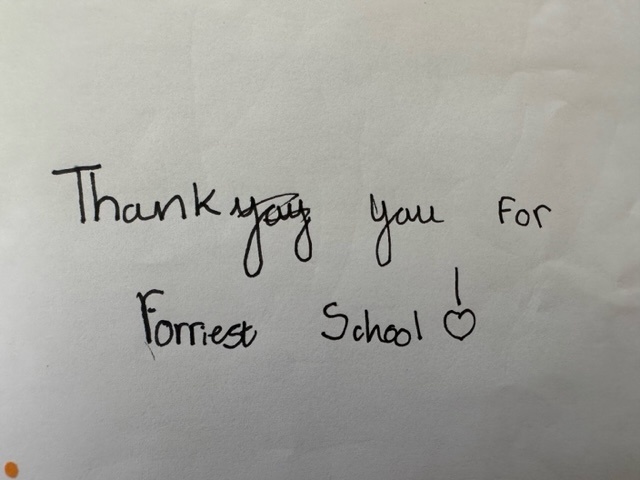 Thank you For
Forriest School!